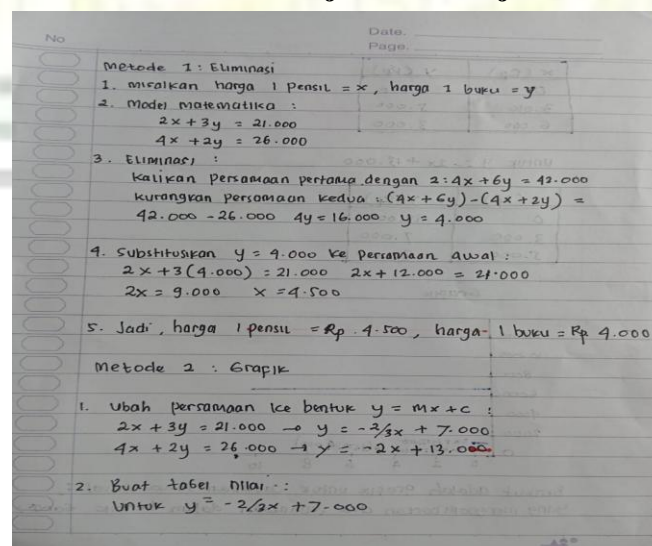 No
Date.
Page.
Metode 1 : Eliminasi
1. misalkan harga 1 pensil = x, harga 1 buku = y
2. Model matematika :
2x + 3y = 21.000
4x + 2y = 26.000
3. Eliminasi :
Kalikan persamaan pertama dengan 2 : 4x + 6y = 42.000
kurangkan persamaan kedua : (4x + 6y) - (4x + 2y) =
42.000 - 26.000 4y = 16.000 y = 4.000
4. Substitusikan y = 4.000 ke persamaan awal :
2x + 3(4.000) = 21.000 2x + 12.000 = 21.000
2x = 9.000 x = 4.500
5. Jadi, harga 1 pensil = Rp. 4.500, harga 1 buku = Rp 4.000
Metode 2 : Grafik
1. Ubah persamaan ke bentuk y = mx + c :
2x + 3y = 21.000 → y = -2/3x + 7.000
4x + 2y = 26.000 → y = -2x + 13.000
2. Buat tabel nilai :
Untuk y = -2/3x + 7.000